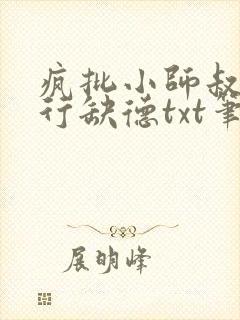 疯批小师叔
行缺德txt笔
展明峰